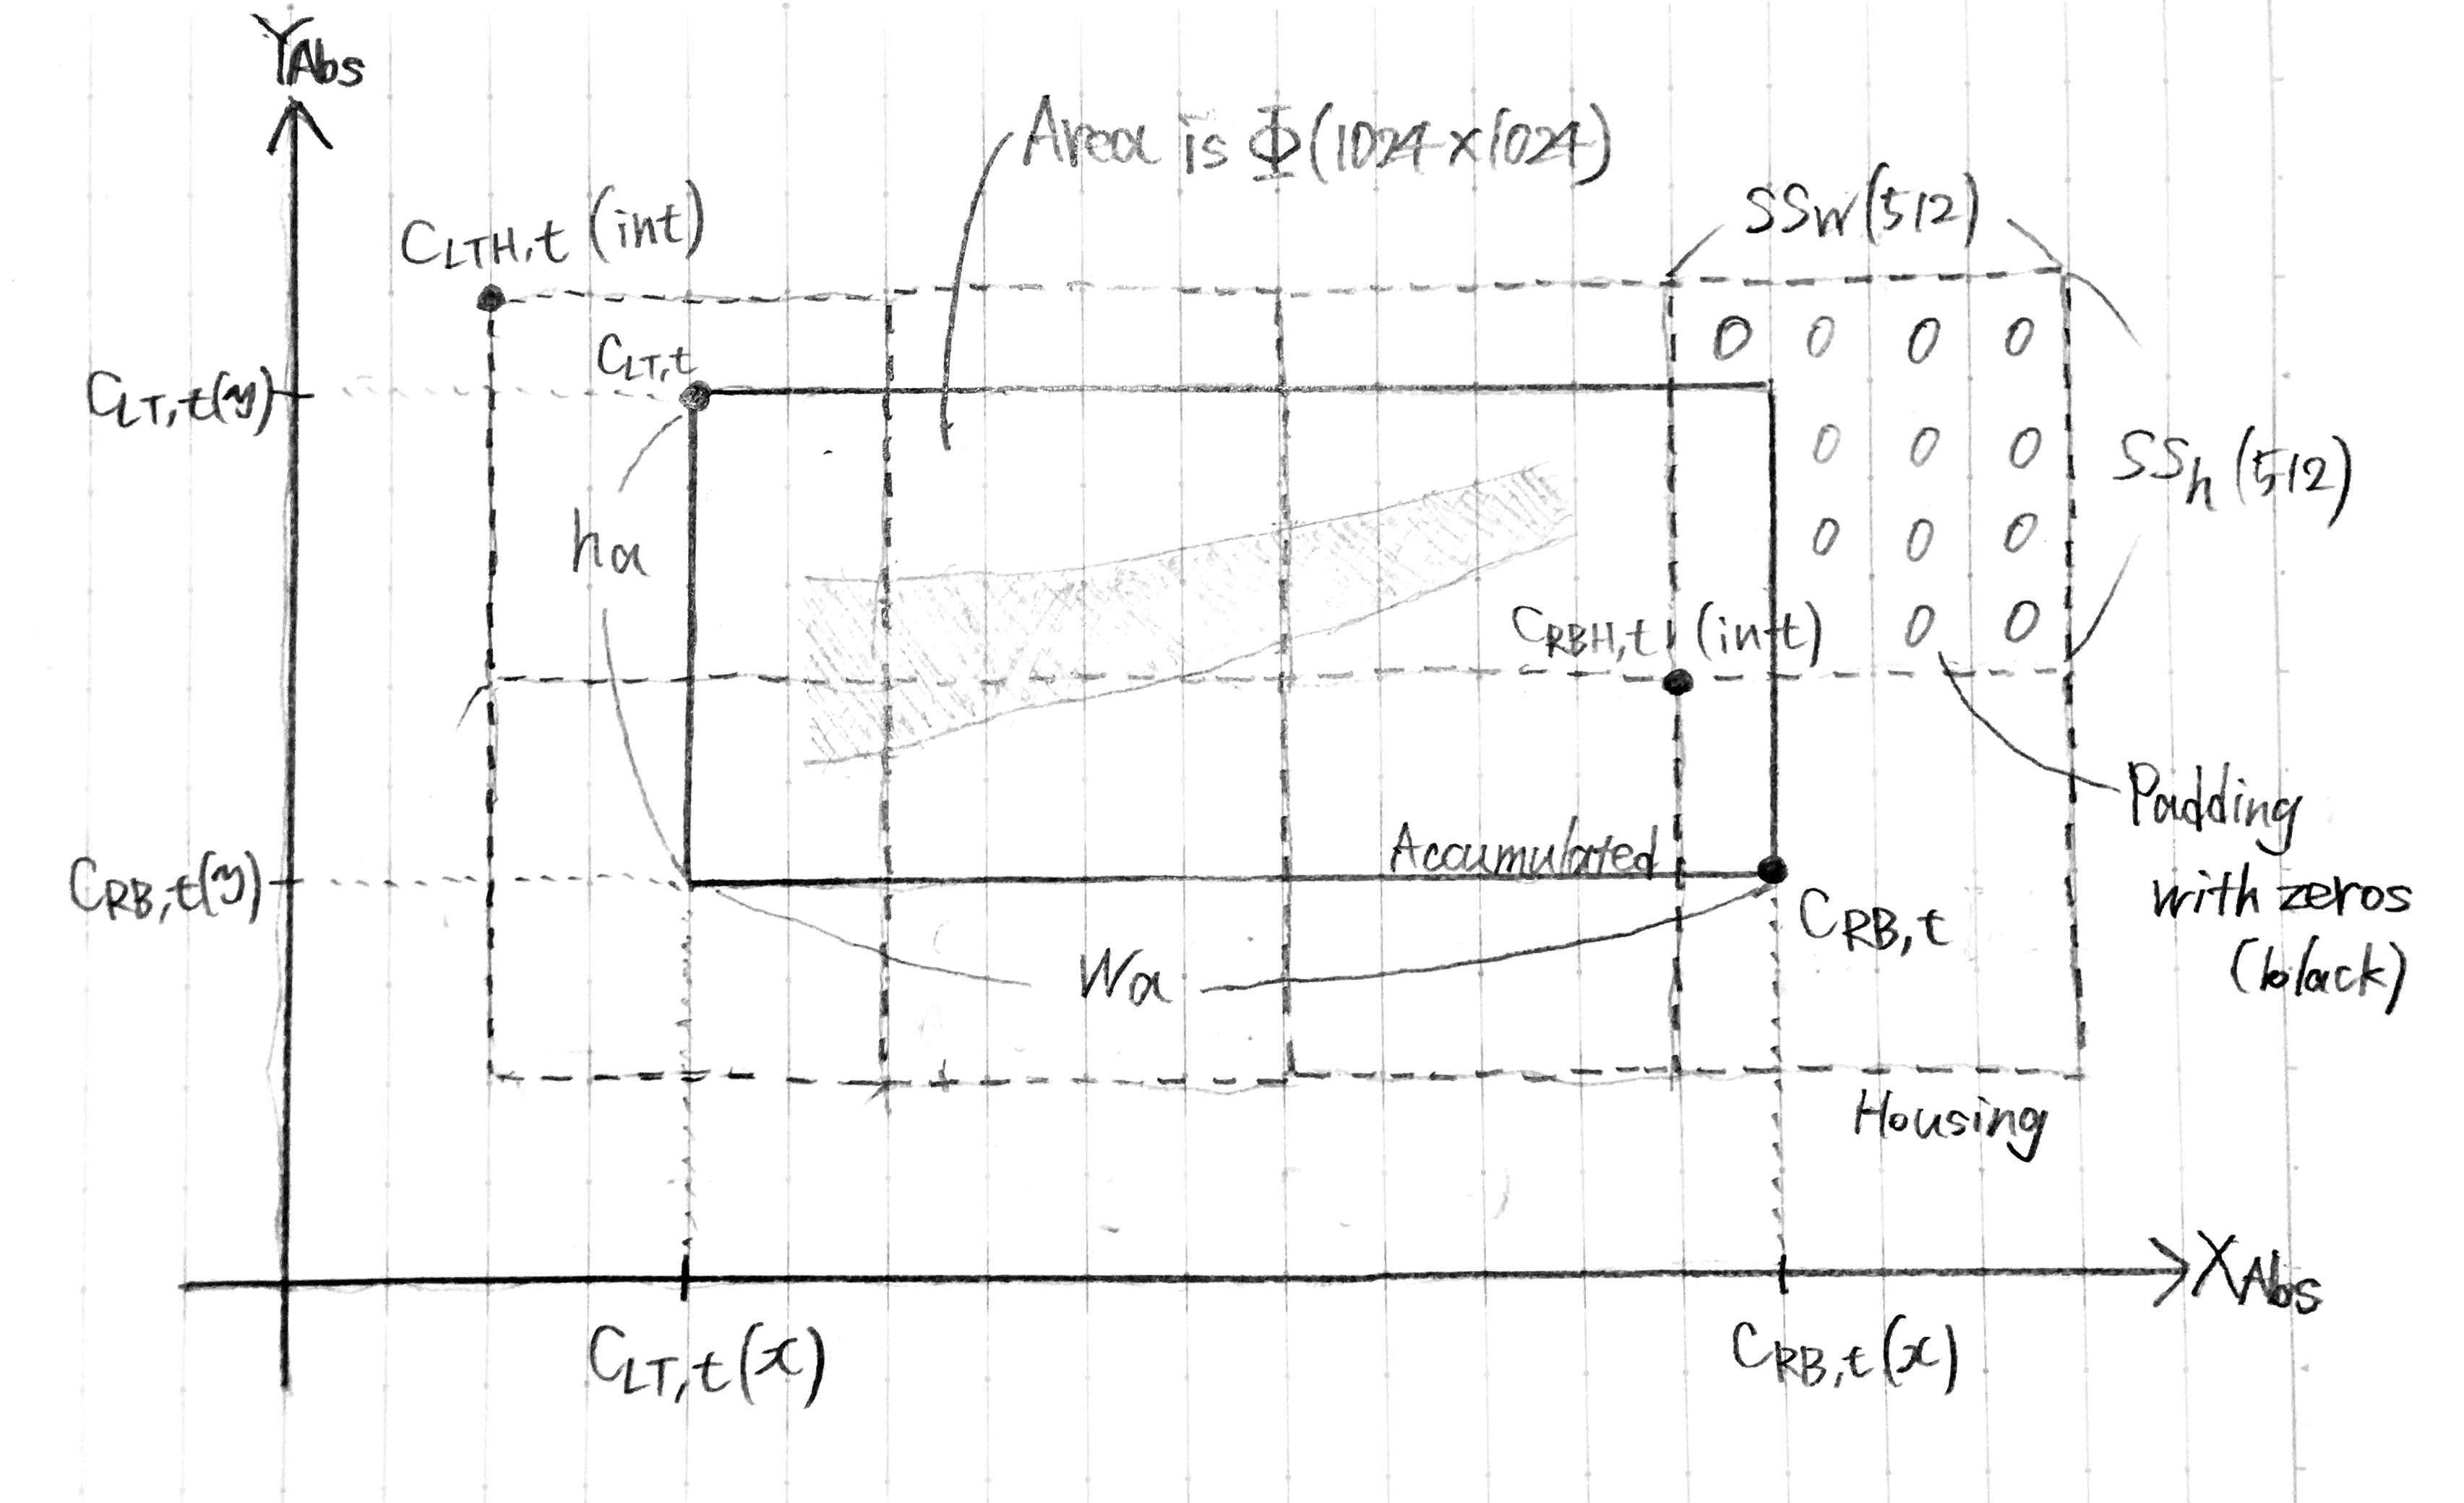 YAbs
Area is Φ(1024×1024)
SSW(512)
CLTH,t (int)
0 0 0 0
CLT,t
CLT,t(y)
0 0 0
SSh(512)
ha
0 0 0
CRBH,t (int)
0 0
Padding
with zeros
(black)
Accumulated
CRB,t(y)
CRB,t
Wa
Housing
XAbs
CLT,t(x)
CRB,t(x)